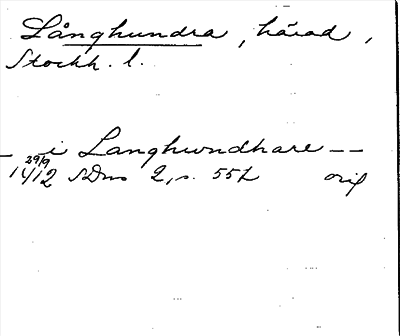 Långhundra, härad,
Stockh. l.
— i Langhwndhare — —
29/9
1412 SDns 2, s. 552 orig